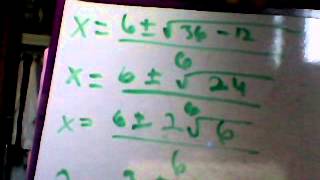 x = 6 ± √36 - 12
6
x = 6 ± √24
6
x = 6 ± 2√6
6